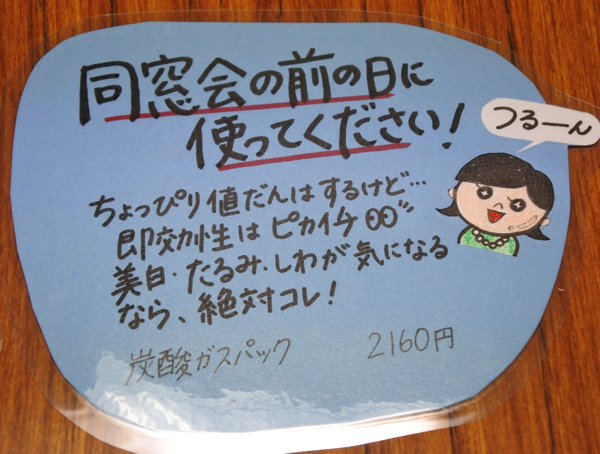 同窓会の前の日に
使ってください！
つるーん
ちょっぴり値だんはするけど…
即効性はピカイチ
美白・たるみ・しわが気になる
なら、絶対コレ！
炭酸ガスパック 2160円